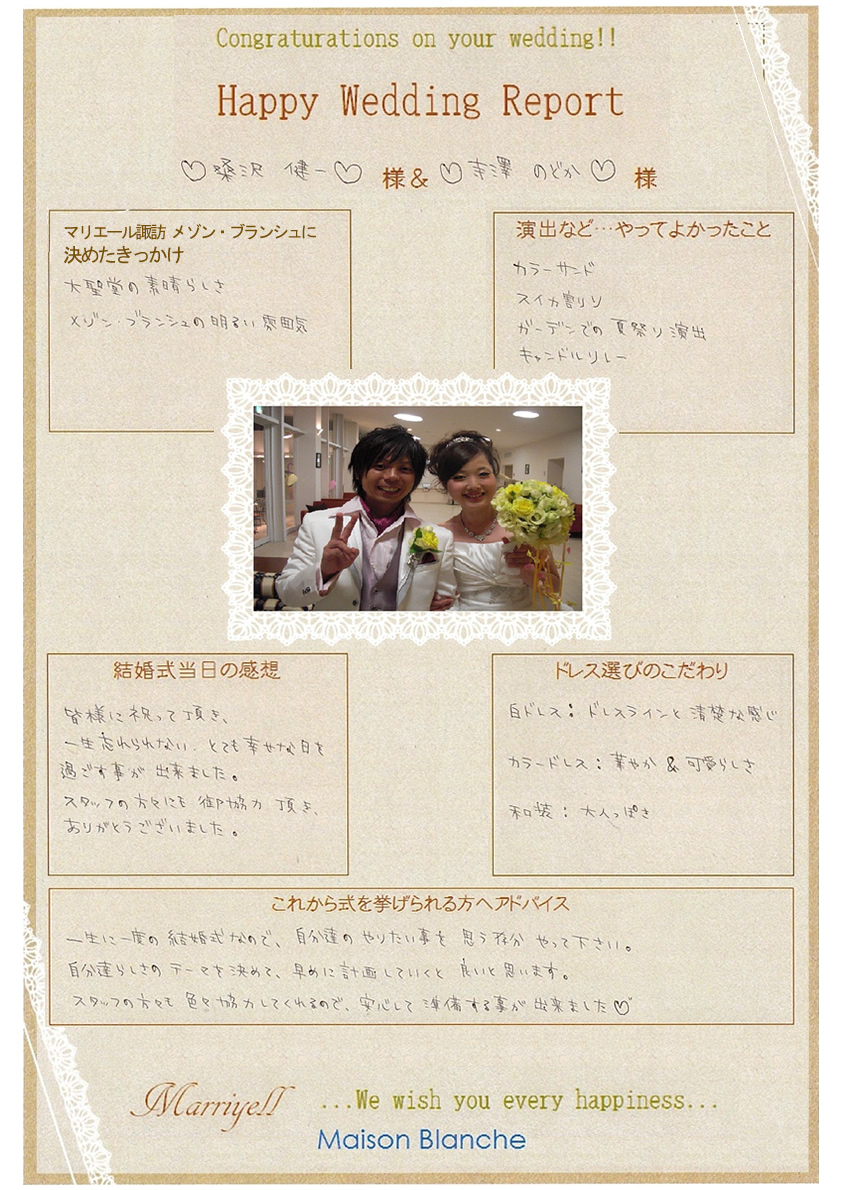 Congraturations on your wedding!!
Happy Wedding Report
♡桑沢 健一♡ 様 & ♡寺澤 のどか♡ 様
マリエール諏訪 メゾン・ブランシュに
決めたきっかけ
大聖堂の素晴らしさ
メゾン・ブランシュの明るい雰囲気
演出など…やってよかったこと
カラーサンド
スイカ割り
ガーデンでの夏祭り演出
キャンドルリレー
結婚式当日の感想
皆様に祝って頂き、
一生忘れられない、とても幸せな日を
過ごす事が出来ました。
スタッフの方々にも御協力頂き、
ありがとうございました。
ドレス選びのこだわり
白ドレス：ドレスラインと清楚な感じ
カラードレス：華やか & 可愛らしさ
和装：大人っぽさ
これから式を挙げられる方へアドバイス
一生に一度の結婚式なので、自分達のやりたい事を思う存分やって下さい。
自分達らしさのテーマを決めて、早めに計画していくと良いと思います。
スタッフの方々も色々協力してくれるので、安心して準備する事が出来ました♡
Marriyell ...We wish you every happiness...
Maison Blanche